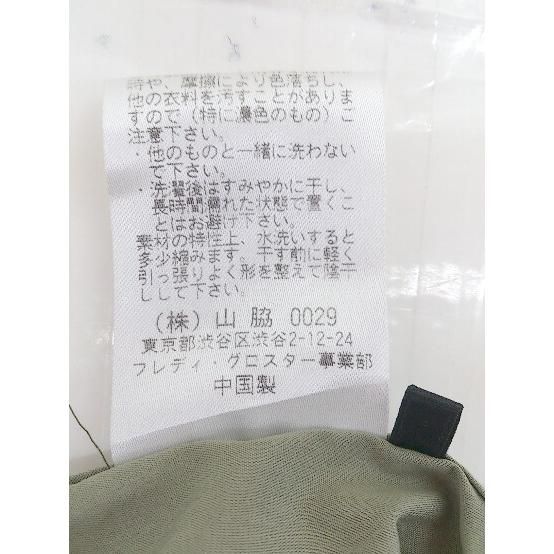 時や、摩擦により色落ちし、
他の衣料を汚すことがありま
すので（特に濃色のもの）ご
注意下さい。
・他のものと一緒に洗わない
で下さい。
・洗濯後はすみやかに干し、
長時間濡れた状態で置くこ
とはお避け下さい。
素材の特性上、水洗いすると
多少縮みます。干す前に軽く
引っ張りよく形を整えて陰干
しして下さい。
（株）山 脇 0029
東京都渋谷区渋谷2-12-24
フレディ・グロスター事業部
中国製